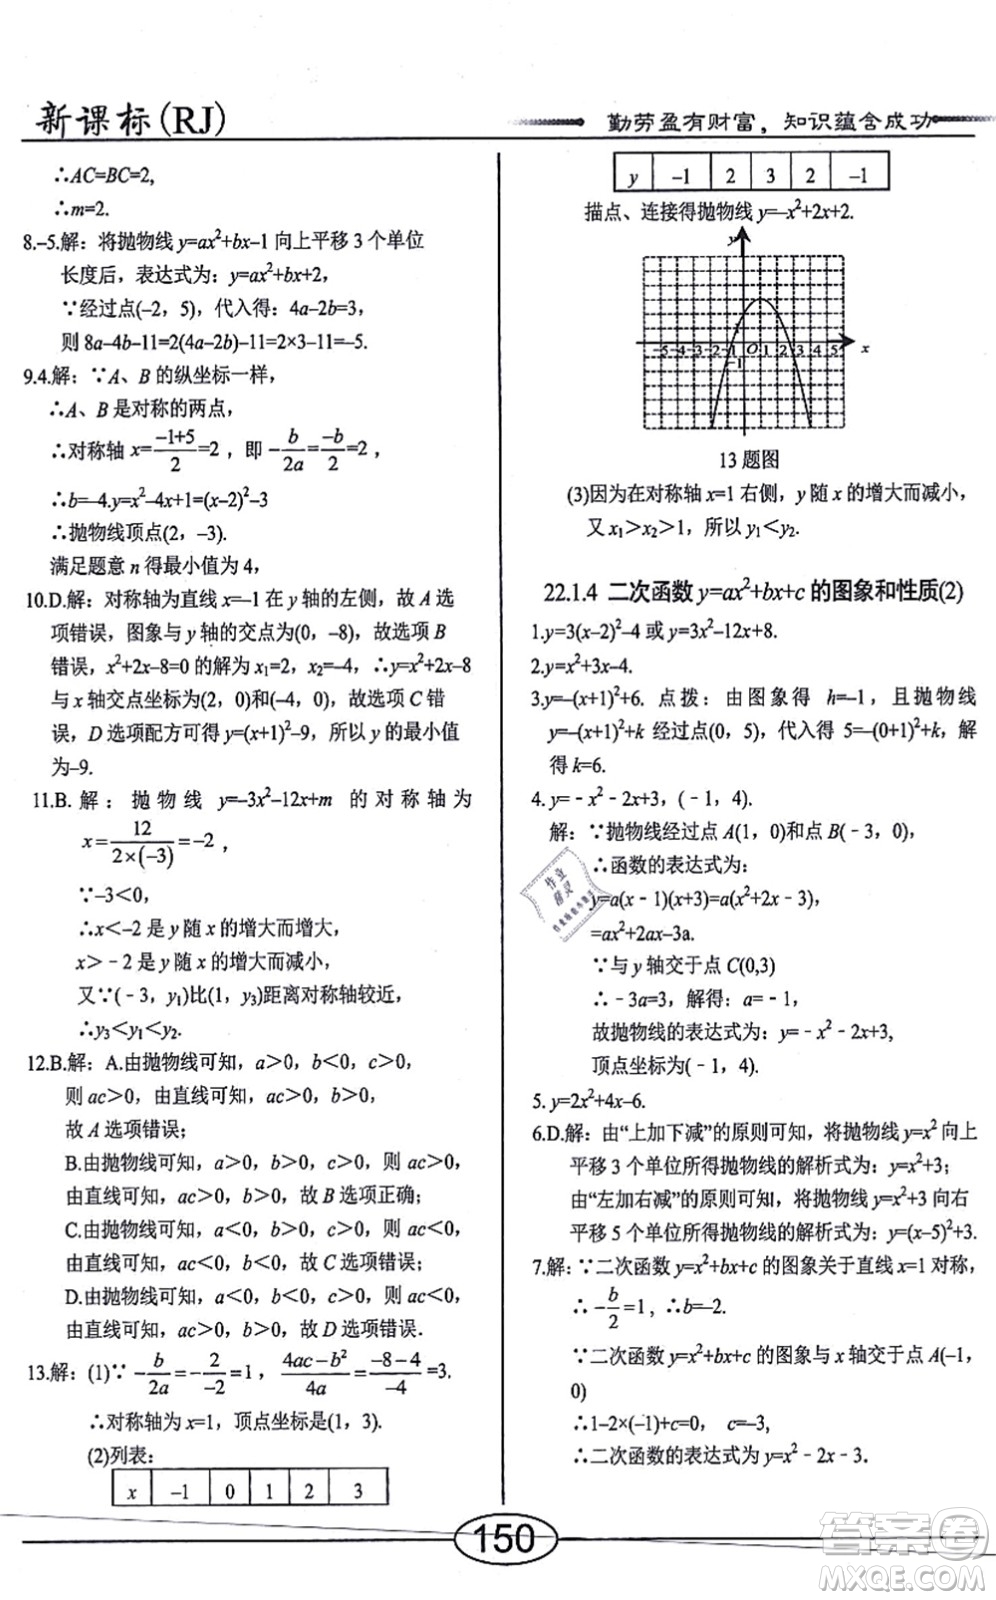 新课标(RJ)
勤劳盈有财富，知识蕴含成功
∴AC=BC=2,
∴m=2.
8.–5.解：将抛物线 y=ax²+bx–1 向上平移 3 个单位
长度后，表达式为：y=ax²+bx+2，
∵经过点(–2，5)，代入得：4a–2b=3，
则 8a–4b–11=2(4a–2b)–11=2×3–11=–5.
9.4.解：∵A、B 的纵坐标一样，
∴A、B 是对称的两点，
∴对称轴 x=(–1+5)/2=2，即–b/2a=–b/2=2，
∴b=–4.y=x²–4x+1=(x–2)²–3
∴抛物线顶点(2，–3).
满足题意 n 得最小值为 4，
10.D.解：对称轴为直线 x=–1 在 y 轴的左侧，故 A 选
项错误，图象与 y 轴的交点为(0，–8)，故选项 B
错误，x²+2x–8=0 的解为 x₁=2，x₂=–4，∴y=x²+2x–8
与 x 轴交点坐标为(2，0)和(–4，0)，故选项 C 错
误，D 选项配方可得 y=(x+1)²–9，所以 y 的最小值
为–9.
11.B. 解：抛物线 y=–3x²–12x+m 的对称轴为
x=12/(2×(–3))=–2，
∵–3<0，
∴x<–2 是 y 随 x 的增大而增大，
x>﹣2 是 y 随 x 的增大而减小，
又∵(﹣3，y₁)比(1，y₃)距离对称轴较近，
∴y₃<y₁<y₂.
12.B.解：A.由抛物线可知，a>0，b<0，c>0，
则 ac>0，由直线可知，ac>0，b>0，
故 A 选项错误；
B.由抛物线可知，a>0，b>0，c>0，则 ac>0，
由直线可知，ac>0，b>0，故 B 选项正确；
C.由抛物线可知，a<0，b>0，c>0，则 ac<0，
由直线可知，ac<0，b<0，故 C 选项错误；
D.由抛物线可知，a<0，b<0，c>0，则 ac<0，
由直线可知，ac>0，b>0，故 D 选项错误.
13.解：(1)∵–b/2a=–2/–2=1，(4ac–b²)/4a=(–8–4)/–4=3.
∴对称轴为 x=1，顶点坐标是(1，3).
(2)列表：
x –1 0 1 2 3
y –1 2 3 2 –1
描点、连接得抛物线 y=–x²+2x+2.
y
–5–4–3–2–1 O 1 2 3 4 5 x
–1
13 题图
(3)因为在对称轴 x=1 右侧，y 随 x 的增大而减小，
又 x₁>x₂>1，所以 y₁<y₂.
22.1.4 二次函数 y=ax²+bx+c 的图象和性质(2)
1.y=3(x–2)²–4 或 y=3x²–12x+8.
2.y=x²+3x–4.
3.y=–(x+1)²+6. 点拨：由图象得 h=–1，且抛物线
y=–(x+1)²+k 经过点(0，5)，代入得 5=–(0+1)²+k，解
得 k=6.
4.y=﹣x²﹣2x+3，(﹣1，4).
解：∵抛物线经过点 A(1，0)和点 B(﹣3，0)，
∴函数的表达式为：
y=a(x﹣1)(x+3)=a(x²+2x﹣3)，
=ax²+2ax–3a.
∵与 y 轴交于点 C(0,3)
∴﹣3a=3，解得：a=﹣1，
故抛物线的表达式为：y=﹣x²﹣2x+3，
顶点坐标为(﹣1，4).
5. y=2x²+4x–6.
6.D.解：由“上加下减”的原则可知，将抛物线 y=x² 向上
平移 3 个单位所得抛物线的解析式为：y=x²+3；
由“左加右减”的原则可知，将抛物线 y=x²+3 向右
平移 5 个单位所得抛物线的解析式为：y=(x–5)²+3.
7.解：∵二次函数 y=x²+bx+c 的图象关于直线 x=1 对称，
∴–b/2=1，∴b=–2.
∵二次函数 y=x²+bx+c 的图象与 x 轴交于点 A(–1，
0)
∴1–2×(–1)+c=0， c=–3，
∴二次函数的表达式为 y=x²﹣2x﹣3.
150
作业
精灵
答案卷
MXQE.COM